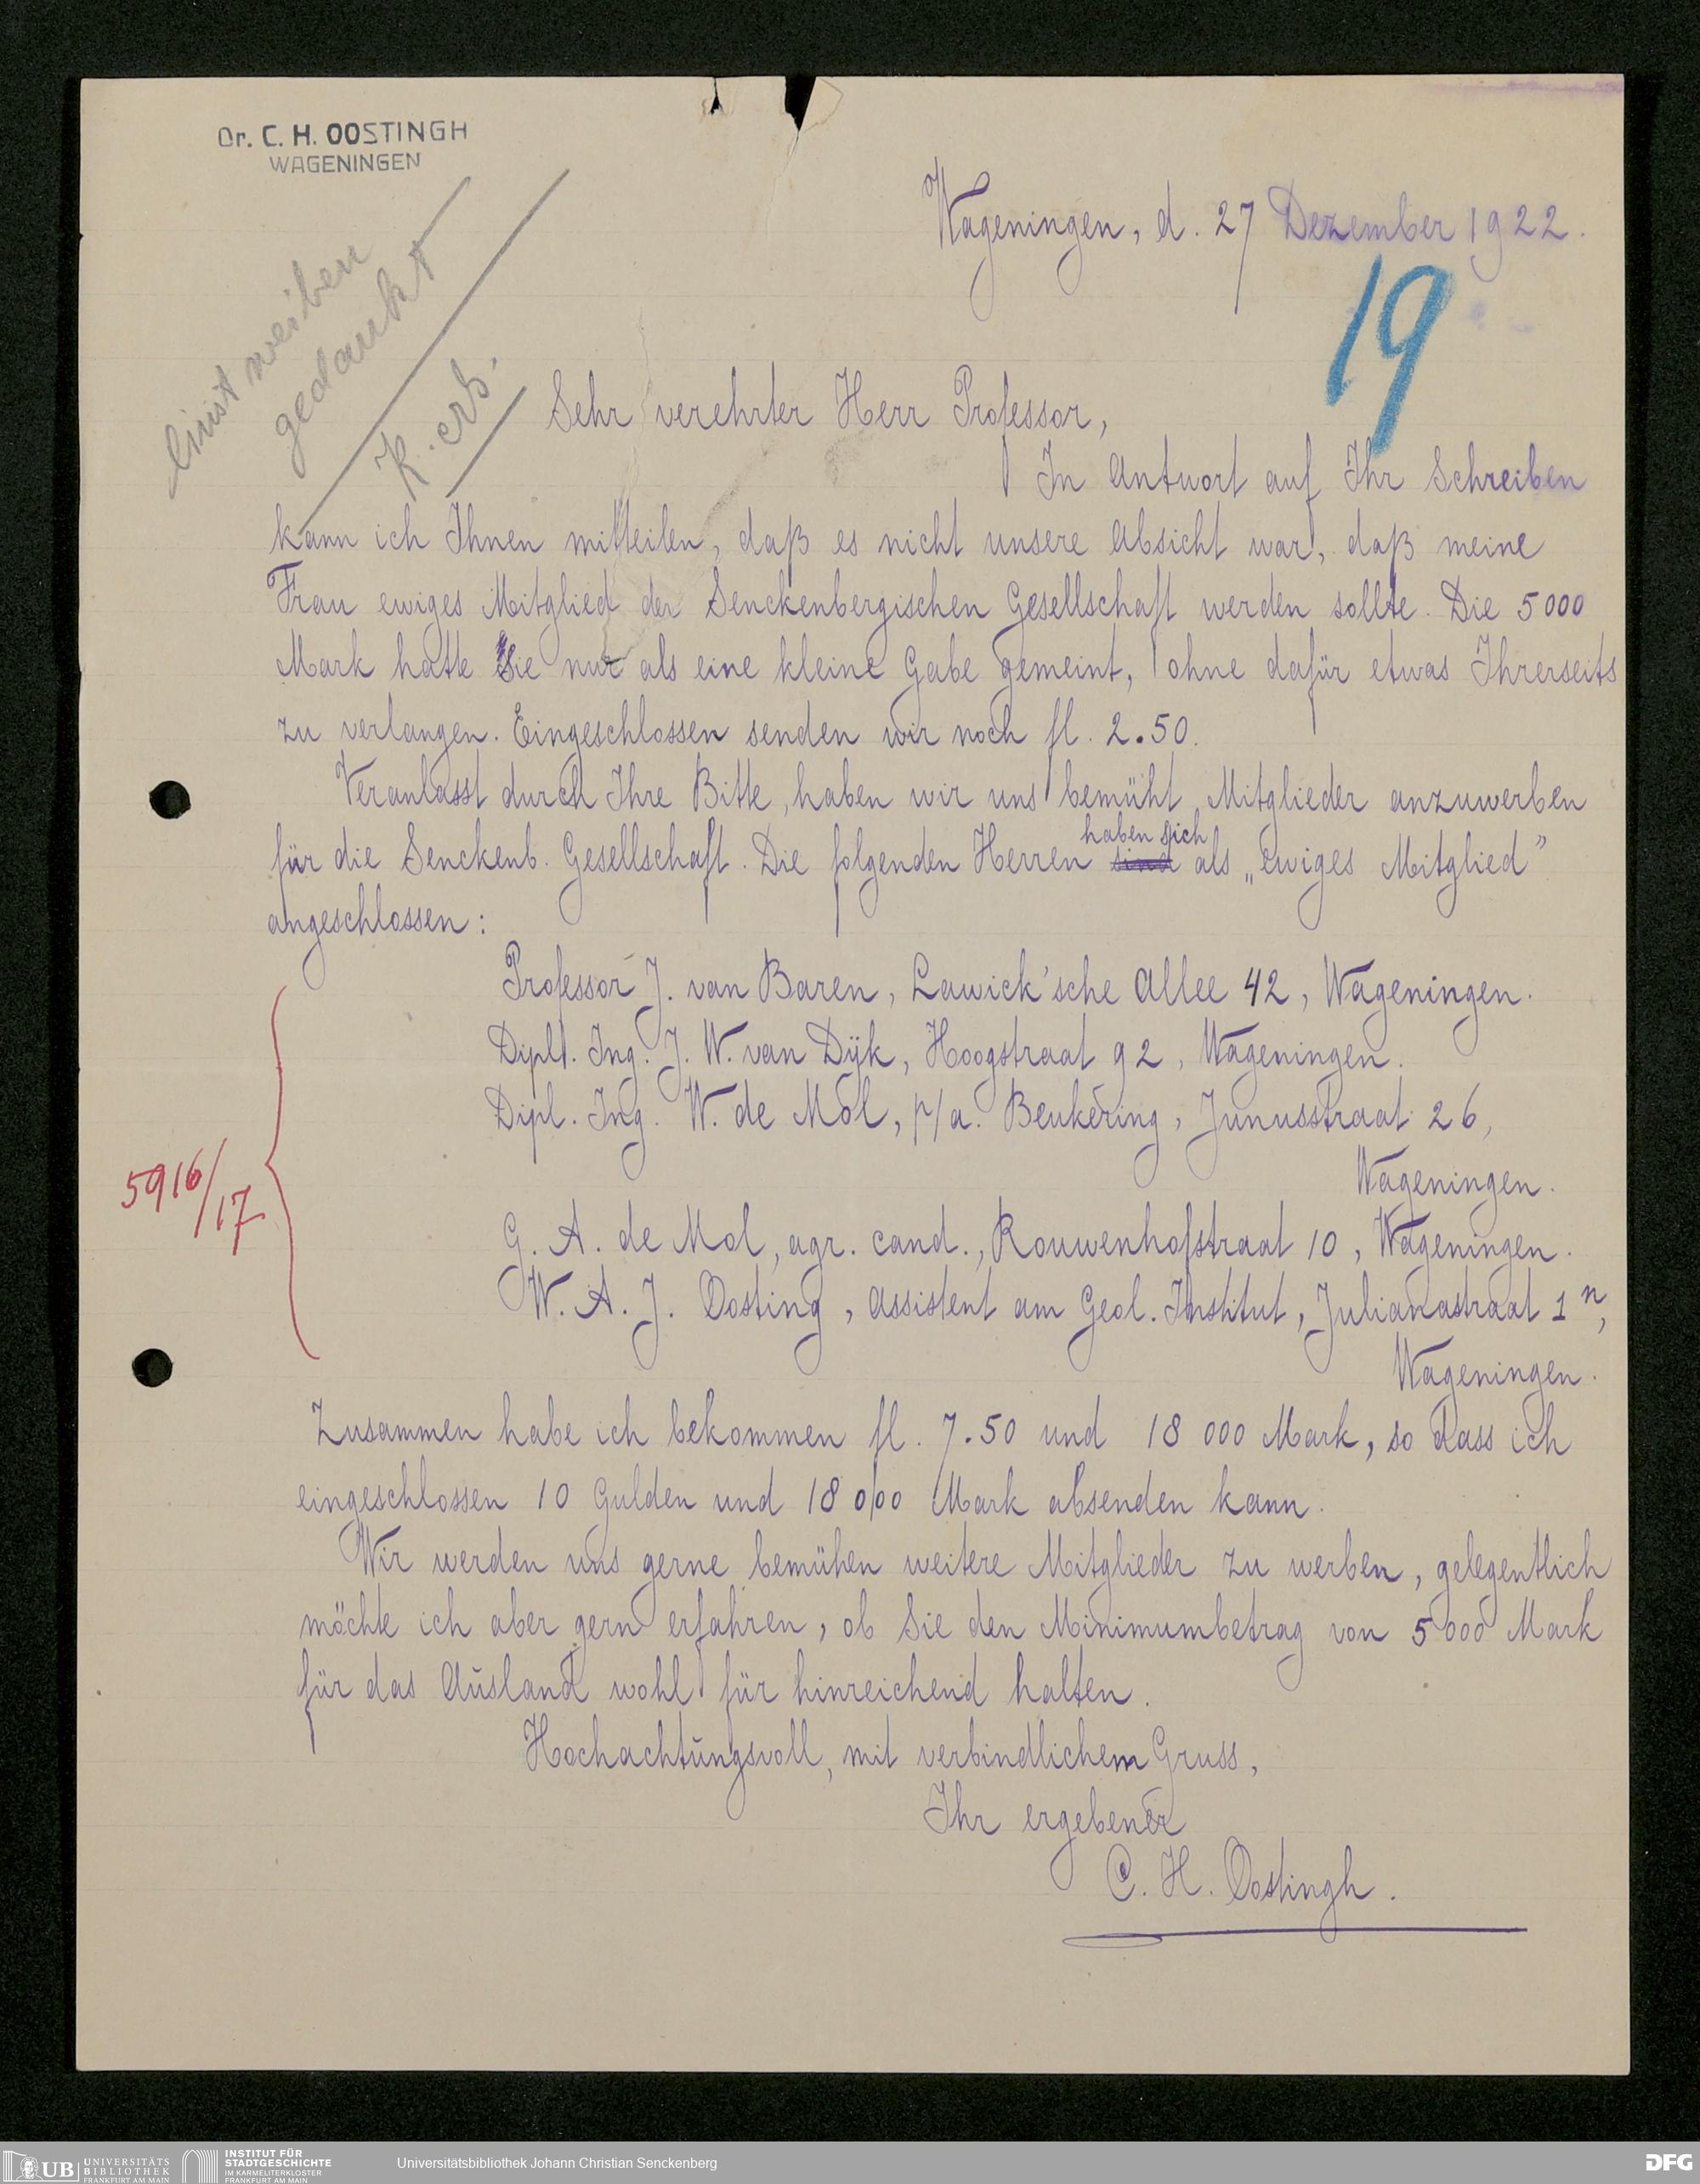 Dr. C. H. OOSTINGH
WAGENINGEN
Wageningen, d. 27 Dezember 1922.
19
einstweilen
gedankt
Sehr verehrter Herr Professor,
In Antwort auf Ihr Schreiben
kann ich Ihnen mitteilen, daß es nicht unsere Absicht war, daß meine
Frau ewiges Mitglied der Senckenbergischen Gesellschaft werden sollte. Die 5000
Mark hatte sie nur als eine kleine Gabe gemeint, ohne dafür etwas Ihrerseits
zu verlangen. Eingeschlossen senden wir noch fl. 2.50.
Veranlasst durch Ihre Bitte, haben wir uns bemüht Mitglieder anzuwerben
für die Senckenb. Gesellschaft. Die folgenden Herren sind haben sich als „ewiges Mitglied”
angeschlossen:
Professor J. van Baren, Lawick'sche Allee 42, Wageningen.
Dipl. Ing. J. W. van Dijk, Hoogstraat 92, Wageningen.
Dipl. Ing. W. de Mol, p/a. Beukering, Junusstraat 26,
Wageningen.
5916/17
G. A. de Mol, agr. cand., Rouwenhofstraat 10, Wageningen.
W. A. J. Oosting, Assistent am Geol. Institut, Julianastraat 1n,
Wageningen.
Zusammen habe ich bekommen fl. 7.50 und 18 000 Mark, so dass ich
eingeschlossen 10 Gulden und 18 000 Mark absenden kann.
Wir werden uns gerne bemühen weitere Mitglieder zu werben, gelegentlich
möchte ich aber gern erfahren, ob Sie den Minimumbetrag von 5000 Mark
für das Ausland wohl für hinreichend halten.
Hochachtungsvoll, mit verbindlichem Gruss,
Ihr ergebener
C. H. Oostingh.
UB UNIVERSITÄTS
BIBLIOTHEK
FRANKFURT AM MAIN
INSTITUT FÜR
STADTGESCHICHTE
IM KARMELITERKLOSTER
FRANKFURT AM MAIN
Universitätsbibliothek Johann Christian Senckenberg
DFG